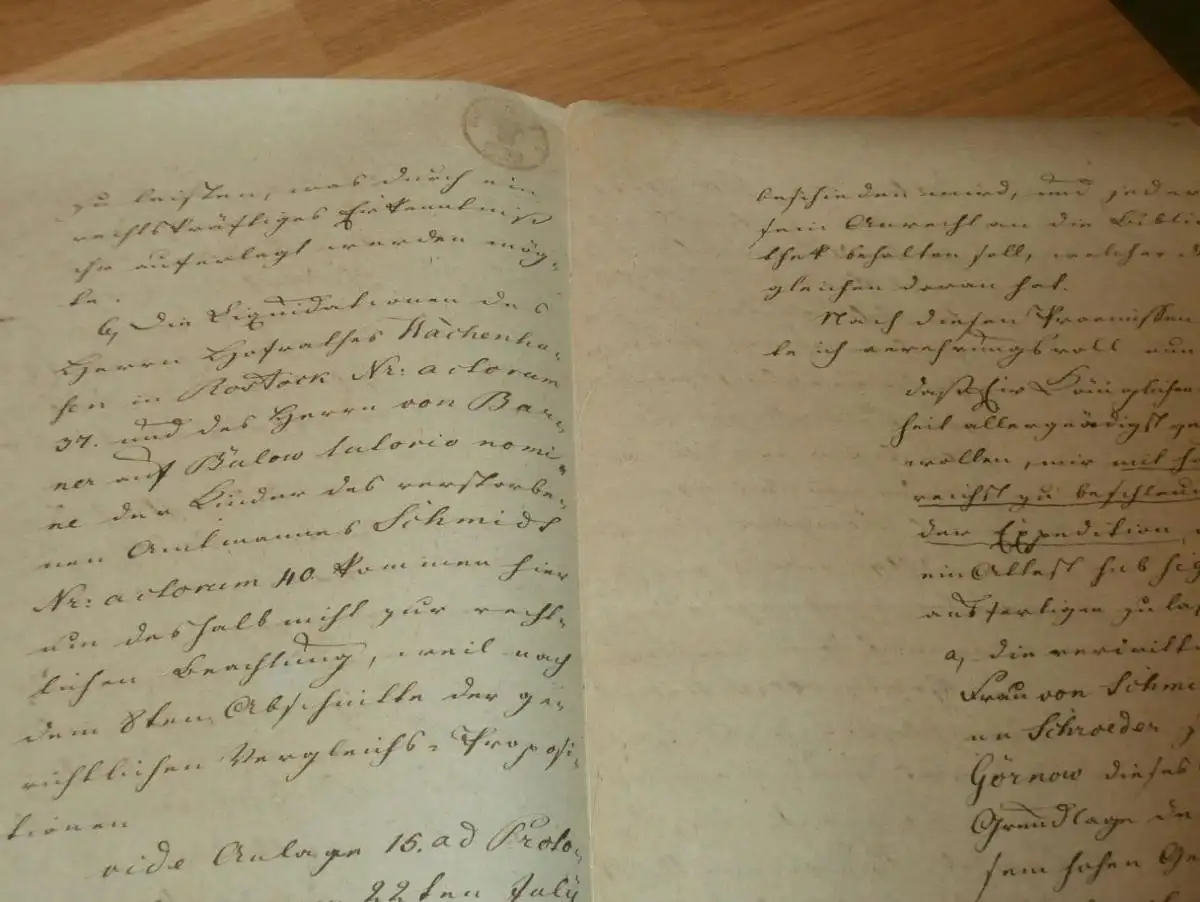 zu leisten, was durch ein
rechtskräftiges Erkenntniß
ihr auferlegt werden mög-
te.
b, Die Liquidationen des
Herrn Hofrathes Wachenhu-
sen in Rostock Nr: actorum
37. und des Herrn von Bar-
ner auf Bülow tutorio nomi-
ne der Kinder des verstorbe-
nen Amtmannes Schmidt
Nr: actorum 40. kommen hier
um deshalb nicht zur recht-
lichen Beachtung, weil nach
dem 8ten Abschnitte der ge-
richtlichen Vergleichs-Proposi-
tionen
vide Anlage 15. ad Proto-
22ten July
beschieden wird, und jeder
sein Anrecht an die Biblio
thek behalten soll, welcher de
gleichen daran hat.
Nach diesen Praemissen
te ich verehrungsvoll nun
daß Ew Königlichen
heit allergnädigst ge
wollen, mir mit
reichst zu beschleu
der Expedition,
ein Attest sub
ausfertigen zu las
a, die verwittw
Frau von Schmi
ne Schroeder
Görnow dieses
Grundlage de
sem hohen Ge